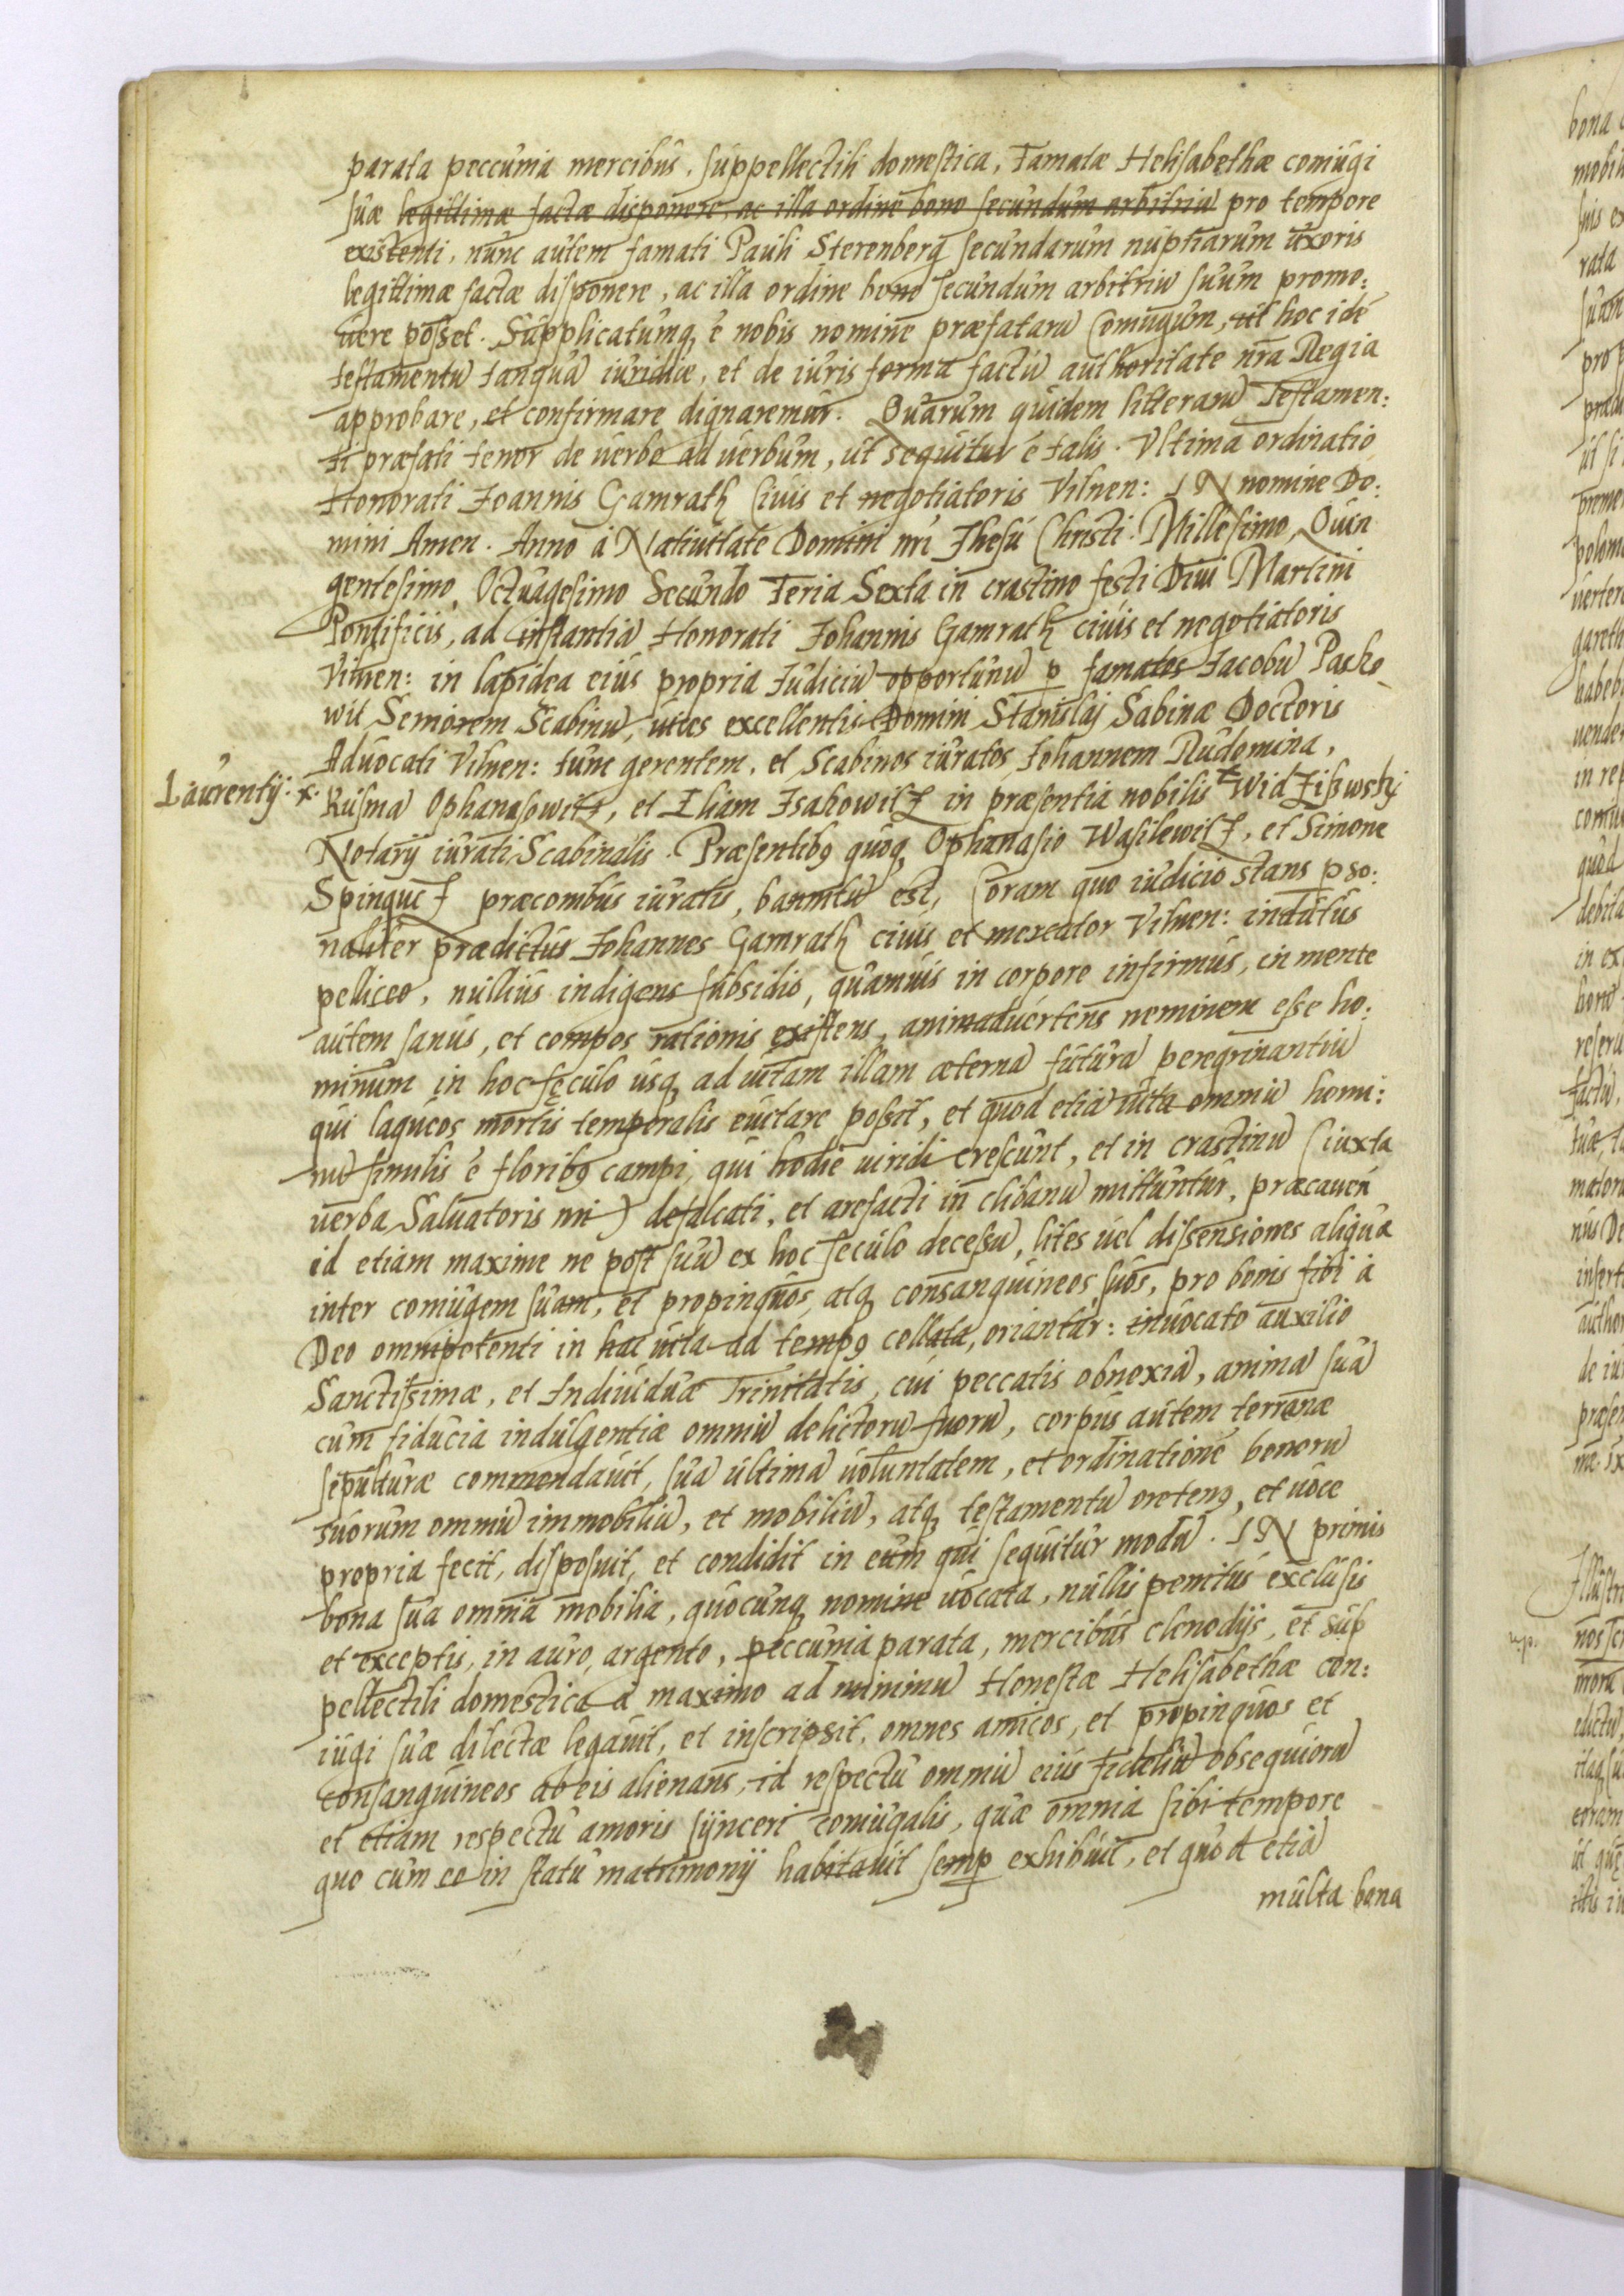 parata peccunia mercibus, suppellectili domestica, Famatæ Helisabethæ coniugi
suæ legittimæ factæ disponere, ac illa ordine bono secundum arbitriū pro tempore
existenti, nunc autem famati Pauli Sterenberg secundarum nuptiarum uxoris
legittimæ factæ disponere, ac illa ordine bono secundum arbitriū suum promo:
uere posset. Supplicatumq, ē nobis nomine præfatarū Coniugum, ut hoc idē
testamentū tanquā iuridice, et de iuris forma factū authoritate nrā Regia
approbare, et confirmare dignaremur. Quarum quidem litterarū Testamen:
ti præfati tenor de uerbo ad uerbum, ut sequitur ē talis. Vltima ordinatio
Honorati Joannis Gamrath Ciuis et negotiatoris Vilnen: IN nomine Do:
mini Amen. Anno à Natiuitate Domini nri Jhesu Christi. Millesimo, Quin
gentesimo, Octuagesimo Secundo Feria Sexta in crastino festi Diui Martini
Pontificis, ad instantiā Honorati Johannis Gamrath ciuis et negotiatoris
Vilnen: in lapidea eius propria Judiciū opportunū p famatos Jacobū Pacho
wit Seniorem Scabinū, uices excellentis Domini Stanislaj Sabinæ Doctoris
Aduocati Vilnen: tunc gerentem, et Scabinos iuratos Johannem Rudomina,
Laurentij. x. Kusma Ophanasowitz, et Eliam Isakowitz in præsentia nobilis x Widzißwskj
Notarij iurati Scabinalis. Præsentib9 quoq, Ophanasio Wasilewitz, et Simone
Spinqucz præconibus iuratis, bannitū est, Coram quo iudicio stans pso:
naliter prædictus Johannes Gamrath ciuis et mercator Vilnen: indutus
pelliceo, nullius indigens subsidio, quamuis in corpore infirmus, in mente
autem sanus, et compos rationis existens, animaduertens neminem esse ho:
minum in hoc sęculo usq, ad uitam illam æternā futurā peregrinantiū
qui laqueos mortis temporalis euitare possit, et quod etiā uita omniū homi:
nū similis ē florib9 campi, qui hodie uiridi crescunt, et in crastinū (iuxta
uerba Saluatoris nri) defalcati, et arefacti in clibanū mittuntur, præcauen
id etiam maxime ne post suū ex hoc seculo decessū, lites uel dissensiones aliquæ
inter coniugem suam, et propinquos atq, consanguineos suos, pro bonis sibi à
Deo omnipotenti in hac uita ad temp9 collata, oriantur: inuocato auxilio
Sanctissimæ, et Indiuiduæ Trinitatis, cui peccatis obnoxiā, animā suā
cum fiducia indulgentiæ omniū delictorū suorū, corpus autem terranæ
sepulturæ commendauit, suā ultimā uoluntatem, et ordinationē bonorū
suorum omniū immobiliū, et mobiliū, atq, testamentū oreten9, et uoce
propria fecit, disposuit, et condidit in eum qui sequitur modū. IN primis
bona sua omnia mobilia, quocunq, nomine uocata, nullis penitus exclusis
et exceptis, in auro, argento, peccunia parata, mercibus clenodijs, et sup
pellectili domestica à maximo ad minimū Honestæ Helisabethæ con:
iugi suæ dilectæ legauit, et inscripsit, omnes amicos, et propinquos et
consanguineos ab eis alienans, id respectu omniū eius fideliū obsequiorū
et etiam respectu amoris synceri coniugalis, quæ omnia sibi tempore
quo cum eo in statu matrimonij habitauit semp exhibuit, et quod etiā
multa bona